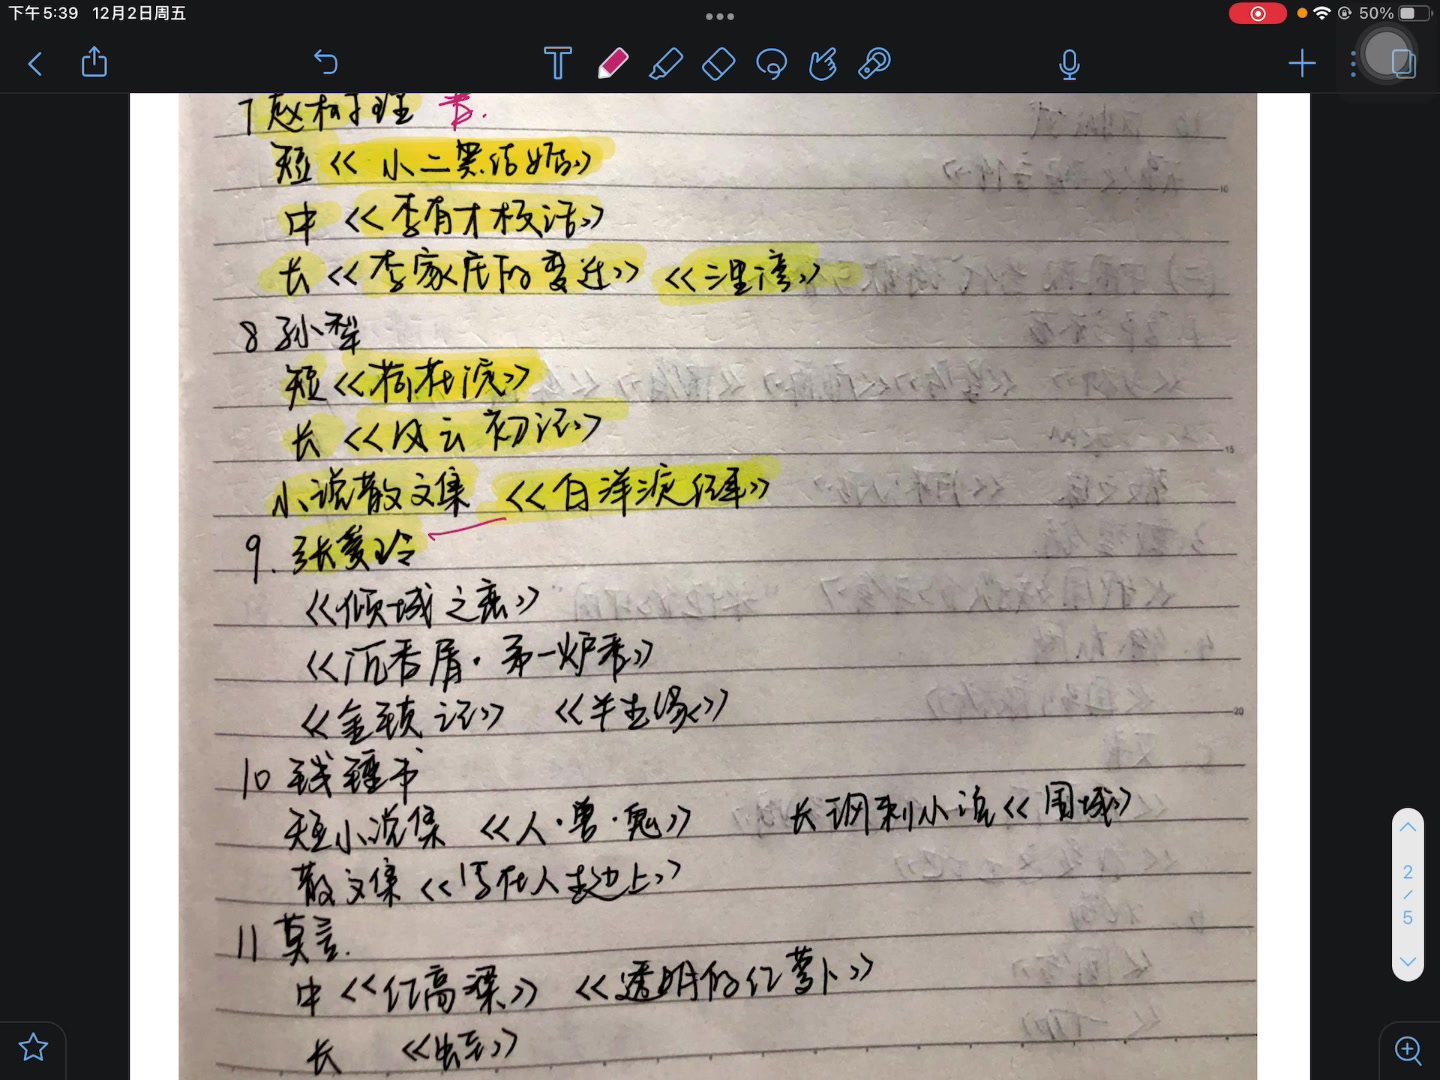 下午5:39 12月2日周五
50%
7 赵树理
短《小二黑结婚》
中《李有才板话》
长《李家庄的变迁》《三里湾》
8 孙犁
短《荷花淀》
长《风云初记》
小说散文集《白洋淀纪事》
9. 张爱玲
《倾城之恋》
《沉香屑·第一炉香》
《金锁记》《半生缘》
10 钱锺书
短小说集《人·兽·鬼》 长讽刺小说《围城》
散文集《写在人生边上》
11 莫言.
中《红高粱》《透明的红萝卜》
长 《生死》
2
/
5